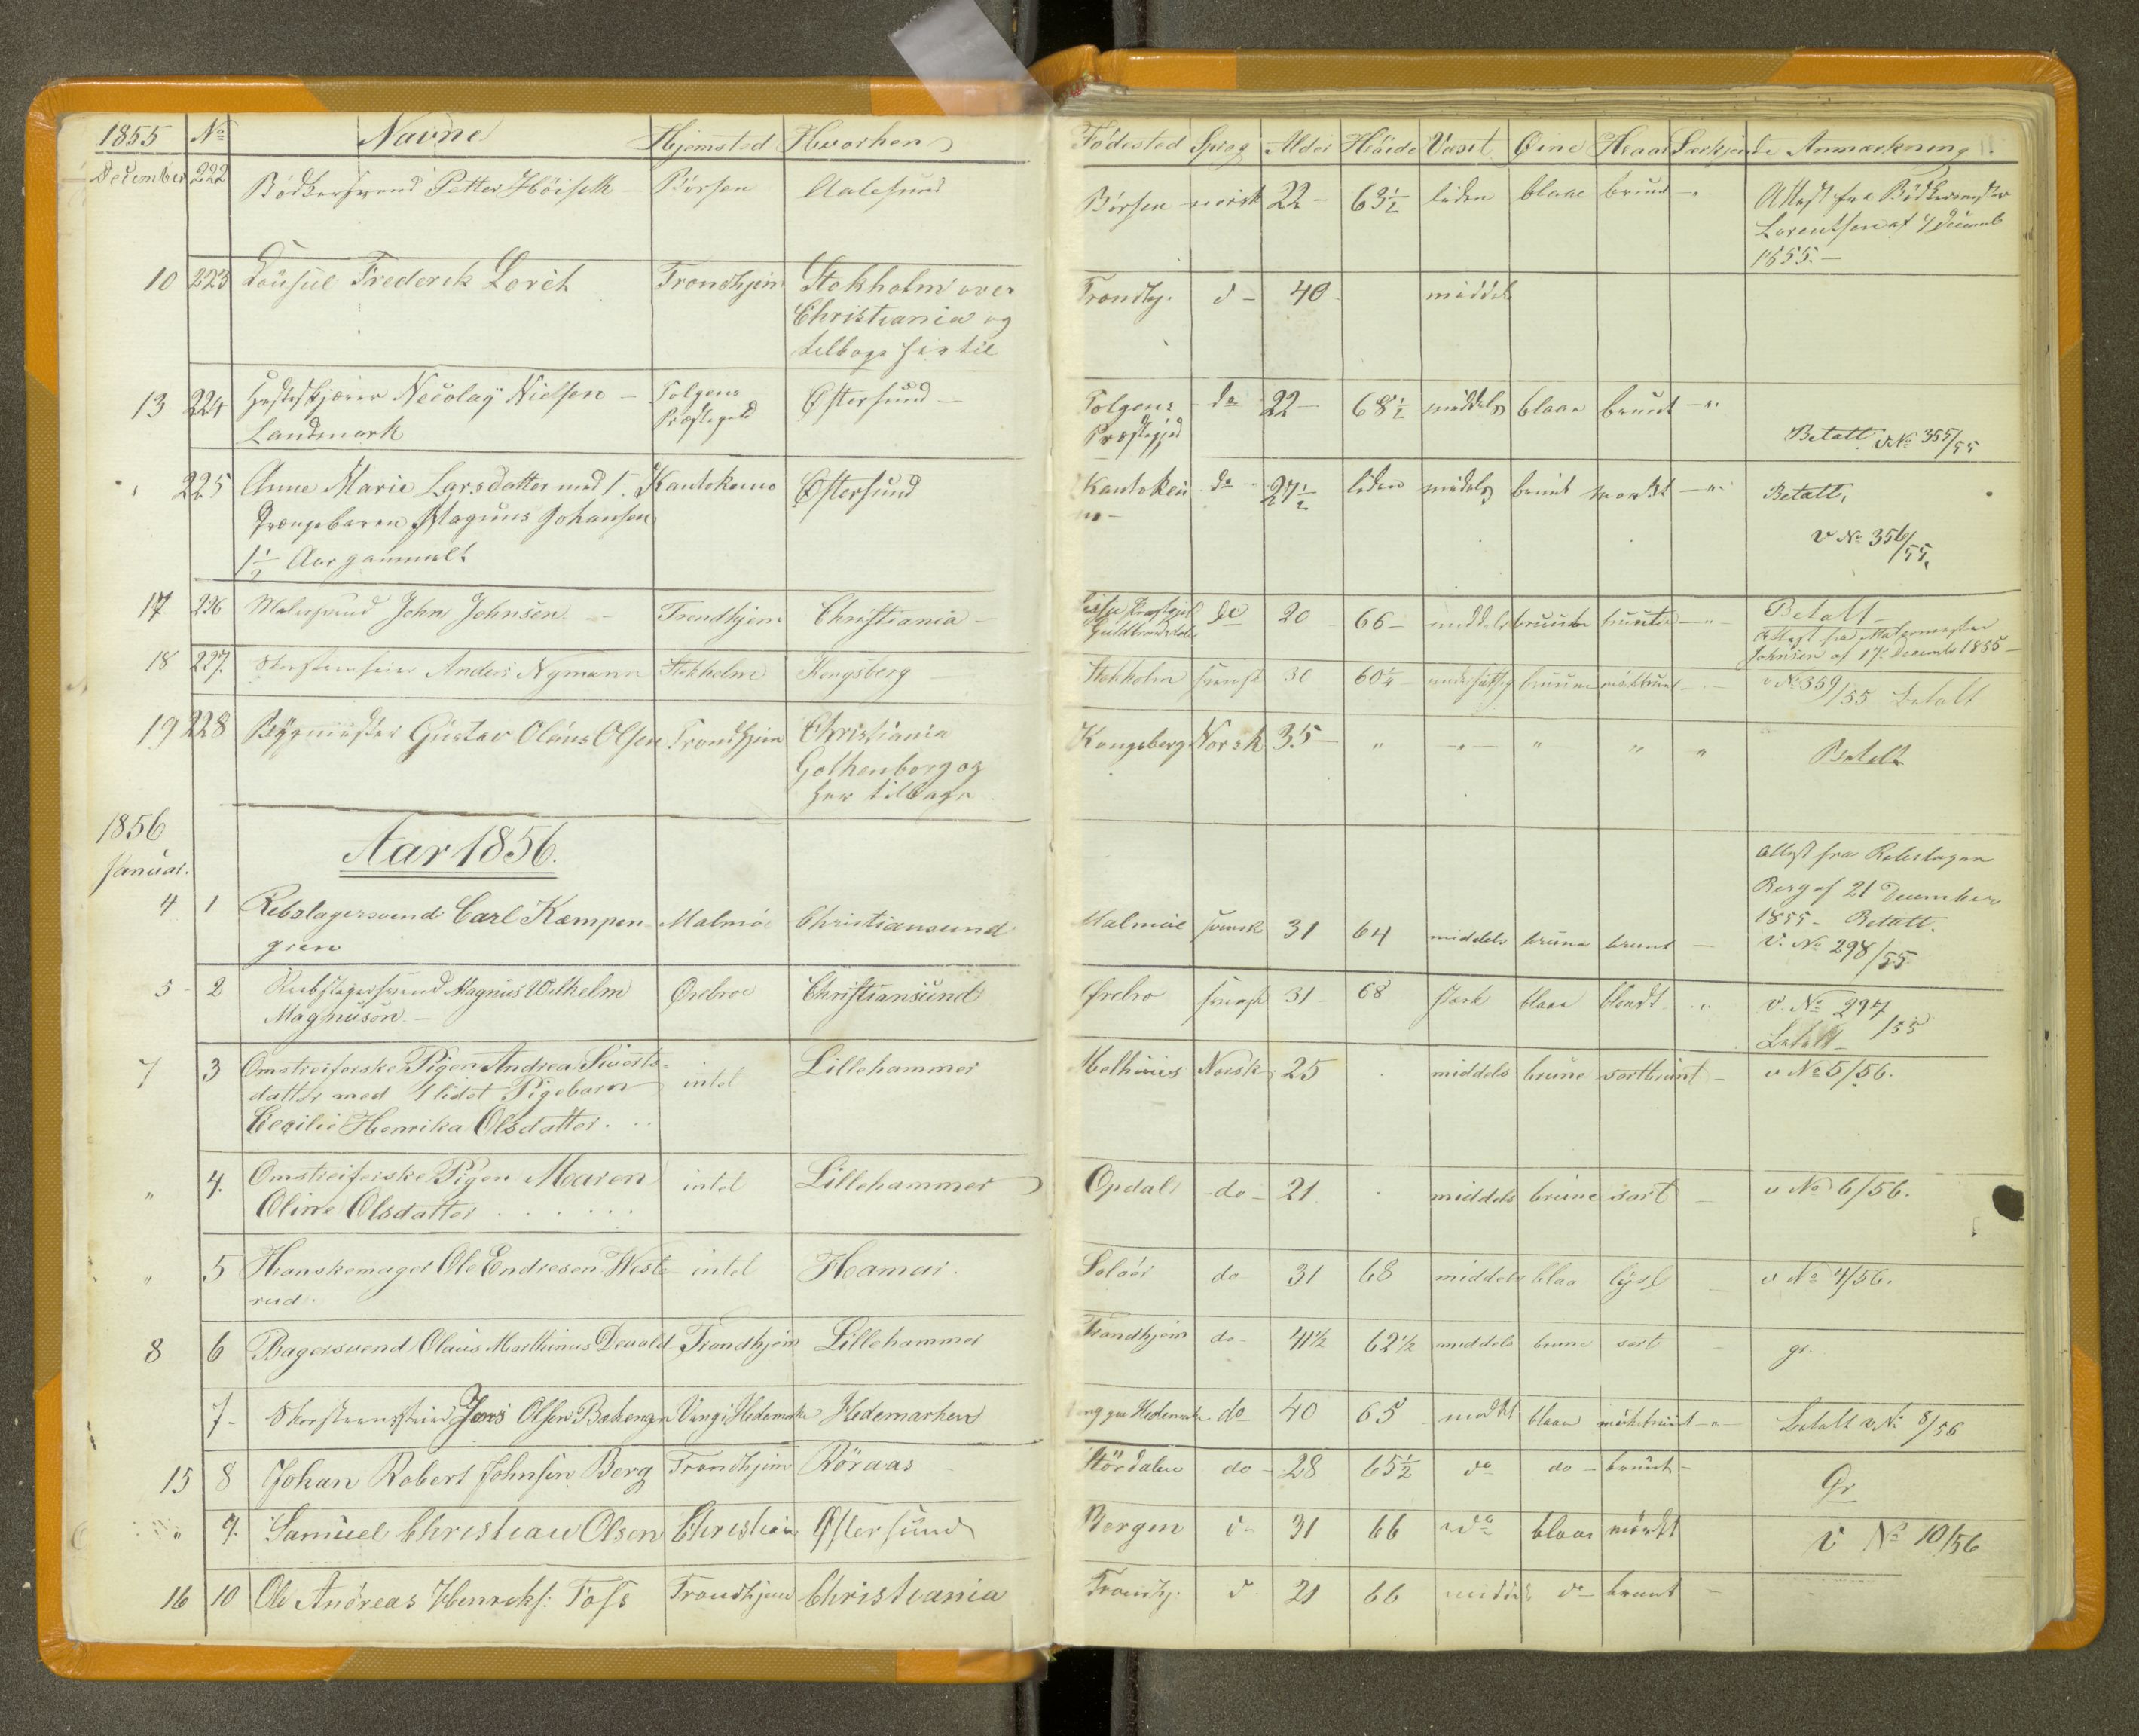 1855 No Navne Hjemsted Hvorhen Fødested Sprog Alder Høide Vaxt Øine Haar Særkjende Anmærkning
December 222 Bødkersvend Petter Høiseth Børsen Aalesund Børsen norsk 22 63 1/2 liden blaae bruunt Attest fra Bødkermester
Lorentsen af 4 Decemb
1855.
10 223 Consul Frederik Lorck Trondhjem Stokholm over Trondhj. d 40 middels
Christiania og
tilbage her til
13 224 Hesteskjærer Nicolay Nielsen Tolgens Østersund Tolgens do 22 68 1/2 middels blaae bruunt
Landmark Præstegjeld Præstegjeld Betalt v No 355/55
" 225 Anne Marie Larsdatter med 1. Kautokeino Østersund Kautokei do 27 1/2 liden middels bruunt mørkt Betalt,
Drengebarn Magnus Johansen no v No 356/55,
1 1/2 Aar gammelt
17 226 Malersvend John Johnsen Trondhjem Christiania Præstegjeld Guldbrandsdalen do 20 66 middels bruune bruunt Betalt
Attest fra Malermester
Johnsen af 17 Decembr 1855
18 227. Skorsteensfeier Anders Nymann Stokholm Kongsberg Stokholm svensk 30 60 1/4 undersætsig bruune mørkbruunt v No 359/55 betalt
19 228 Bygmester Gustav Olaus Olsen Trondhjem Christiania Kongsberg Norsk 35 " " " " " Betalt
Gothenborg og
her tilbage
1856
Januar.
Aar 1856.
Attest fra Rebslager
Berg af 21 December
4 1 Rebslagersvend Carl Kæmpen- Malmöe Christiansund Malmöe svensk 31 64 middels bruune bruunt 1855 - Betalt.
gren V. No 298/55
5 2 Reebslagersvend Magnus Wilhelm Örebroe Christiansund Örebro svensk 31 68 stærk blaae blondt v. No 297/55
Magnuson betalt
7 3 Omstreiferske Pigen Andrea Siverts- intet Lillehammer Melhuus Norsk 25 middels brune sortbrunt v No 5/56.
datter med 1 lidet Pigebarn
Cecilie Henrika Olsdatter.
" 4. Omstreiferske Pigen Maren intet Lillehammer Opdal do 21 middels brune sort v No 6/56.
Oline Olsdatter
" 5 Hanskemager Ole Endresen West- intet Hamar. Soløer do 31 68 middels blaa lyst v No 4/56.
rud.
8 6 Bagersvend Olaus Marthinus Devold Trondhjem Lillehammer Trondhjem do 41 1/2 62 1/2 middels brune sort gr.
7 Skorsteensfeier Jens Olsen Vang i Hedemarken Hedemarken Vang paa Hedemarken do 40 65 middels blaae mørkebruunt betalt v No 8/56
15 8 Johan Robert Johnsen Berg Trondhjem Röraas Stördalen do 28 65 1/2 do do bruunt Gr
" 9. Samuel Christian Olsen Christiania Østersund Bergen d 31 66 do blaae mørkt V No 10/56
16 10 Ole Andreas Henriks: Foss Trondhjem Christiania Trondhj. d 21 66 middels do bruunt